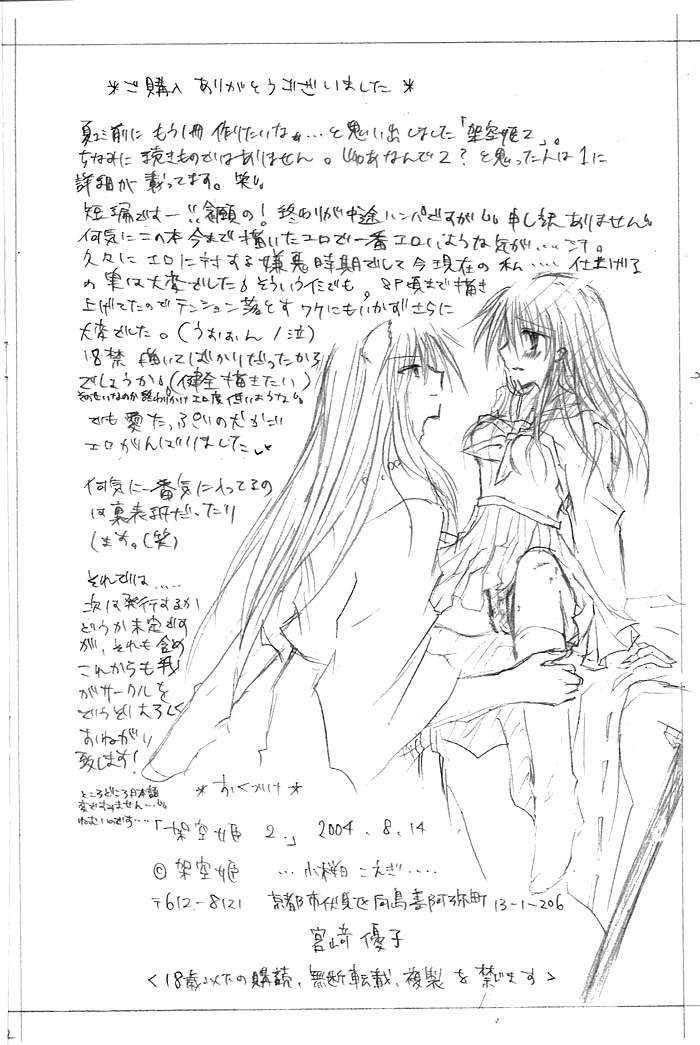 *ご購入 ありがとうございました*
夏コミ前に もう1冊 作りたいなぁ…と思い出しました「架空姫2」。
ちなみに 続きものではありません。じゃあなんで2？と思った人は1に
詳細が 載ってます。笑
短編ですー!! 念願の！終わりが中途ハンパですが 申し訳ありません
何気にこの本 今まで描いたエロで一番エロいような気が…です。
久々に エロに対する嫌悪時期でして 今現在の私…. 仕上げる
の実は大変でした。そういうイミでも。8P頃まで描き
上げてたのでテンション落とす ワケにもいかずさらに
大変でした。(うおぉん/泣)
18禁 描いてばかりだったから
でしょうか(健全描きたい)
でも 愛たっぷりの
エロがんばりました
何気に一番気に入ってるの
は裏表紙だったり
します。(笑)
それでは.....
次は発行するか
どうか未定です
が、それも含め
これからも我
がサークルを
どうぞよろしく
おねがい
致します！
ところどころ日本語
変ですみません…
ねむいのです…
*おくづけ*
「架空姫 2.」 2004.8.14
© 架空姫 …小桜 こえぎ….
〒612-8121 京都市伏見区向島善阿弥町 13-1-206
宮崎 優子
<18歳以下の購読、無断転載、複製を禁じます>